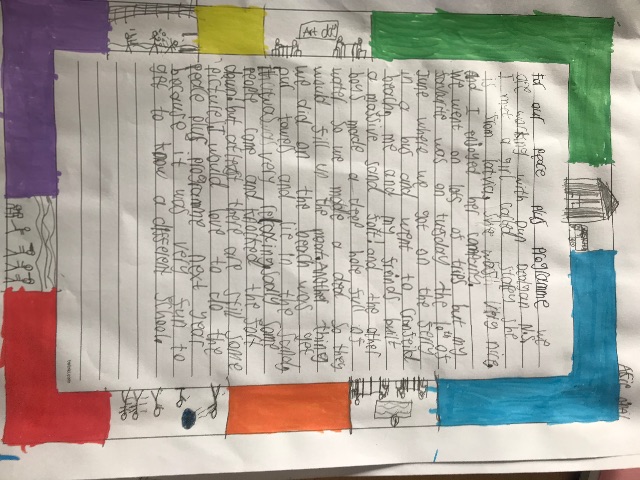 for our peace plus programme we
are working with Dun Dealgan N.S.
I met a girl called she
is from latvia. She was very nice
and I enjoyed her company.
We went on lots of trips but my
favourite was on tuesday the of
June where we got on the ferry
in a bus and went to Cranfield
beach. me and my friends built
a massive sand fort. and the other
boys made a deep hole full of
water so we made a door so they
would fill in the moat. Another thing
we did on the beach was get
our towels and lie in the sand.
It was very relaxing some
people came and knocked the fort
down. but at least there are still some
pictures. I would love to do the
peace plus programme next year
because it was very fun to
get to know a different school.
Art